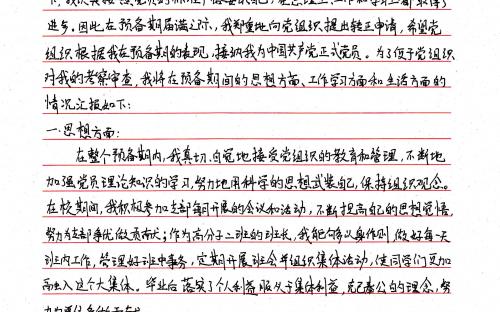 进步。因此,在预备期届满之际,我郑重地向党组织提出转正申请,希望党
组织根据我在预备期的表现,接纳我为中国共产党正式党员。为了便于党组织
对我的考察审查,我将在预备期间的思想方面、工作学习方面和生活方面的
情况汇报如下:
一.思想方面:
在整个预备期内,我真切、自觉地接受党组织的教育和管理,不断地
加强党员理论知识的学习,努力地用科学的思想武装自己,保持组织观念。
在校期间,我积极参加支部每月开展的会议和活动,不断提高自己的思想觉悟,
努力为支部事优做贡献;作为高分子二班的班长,我能够以身作则,做好每一天
班内工作,管理好班中事务,定期开展班会并组织集体活动,使同学们更加
融入这个大集体。毕业后落实了个人利益服从于集体利益,克己奉公的理念,努